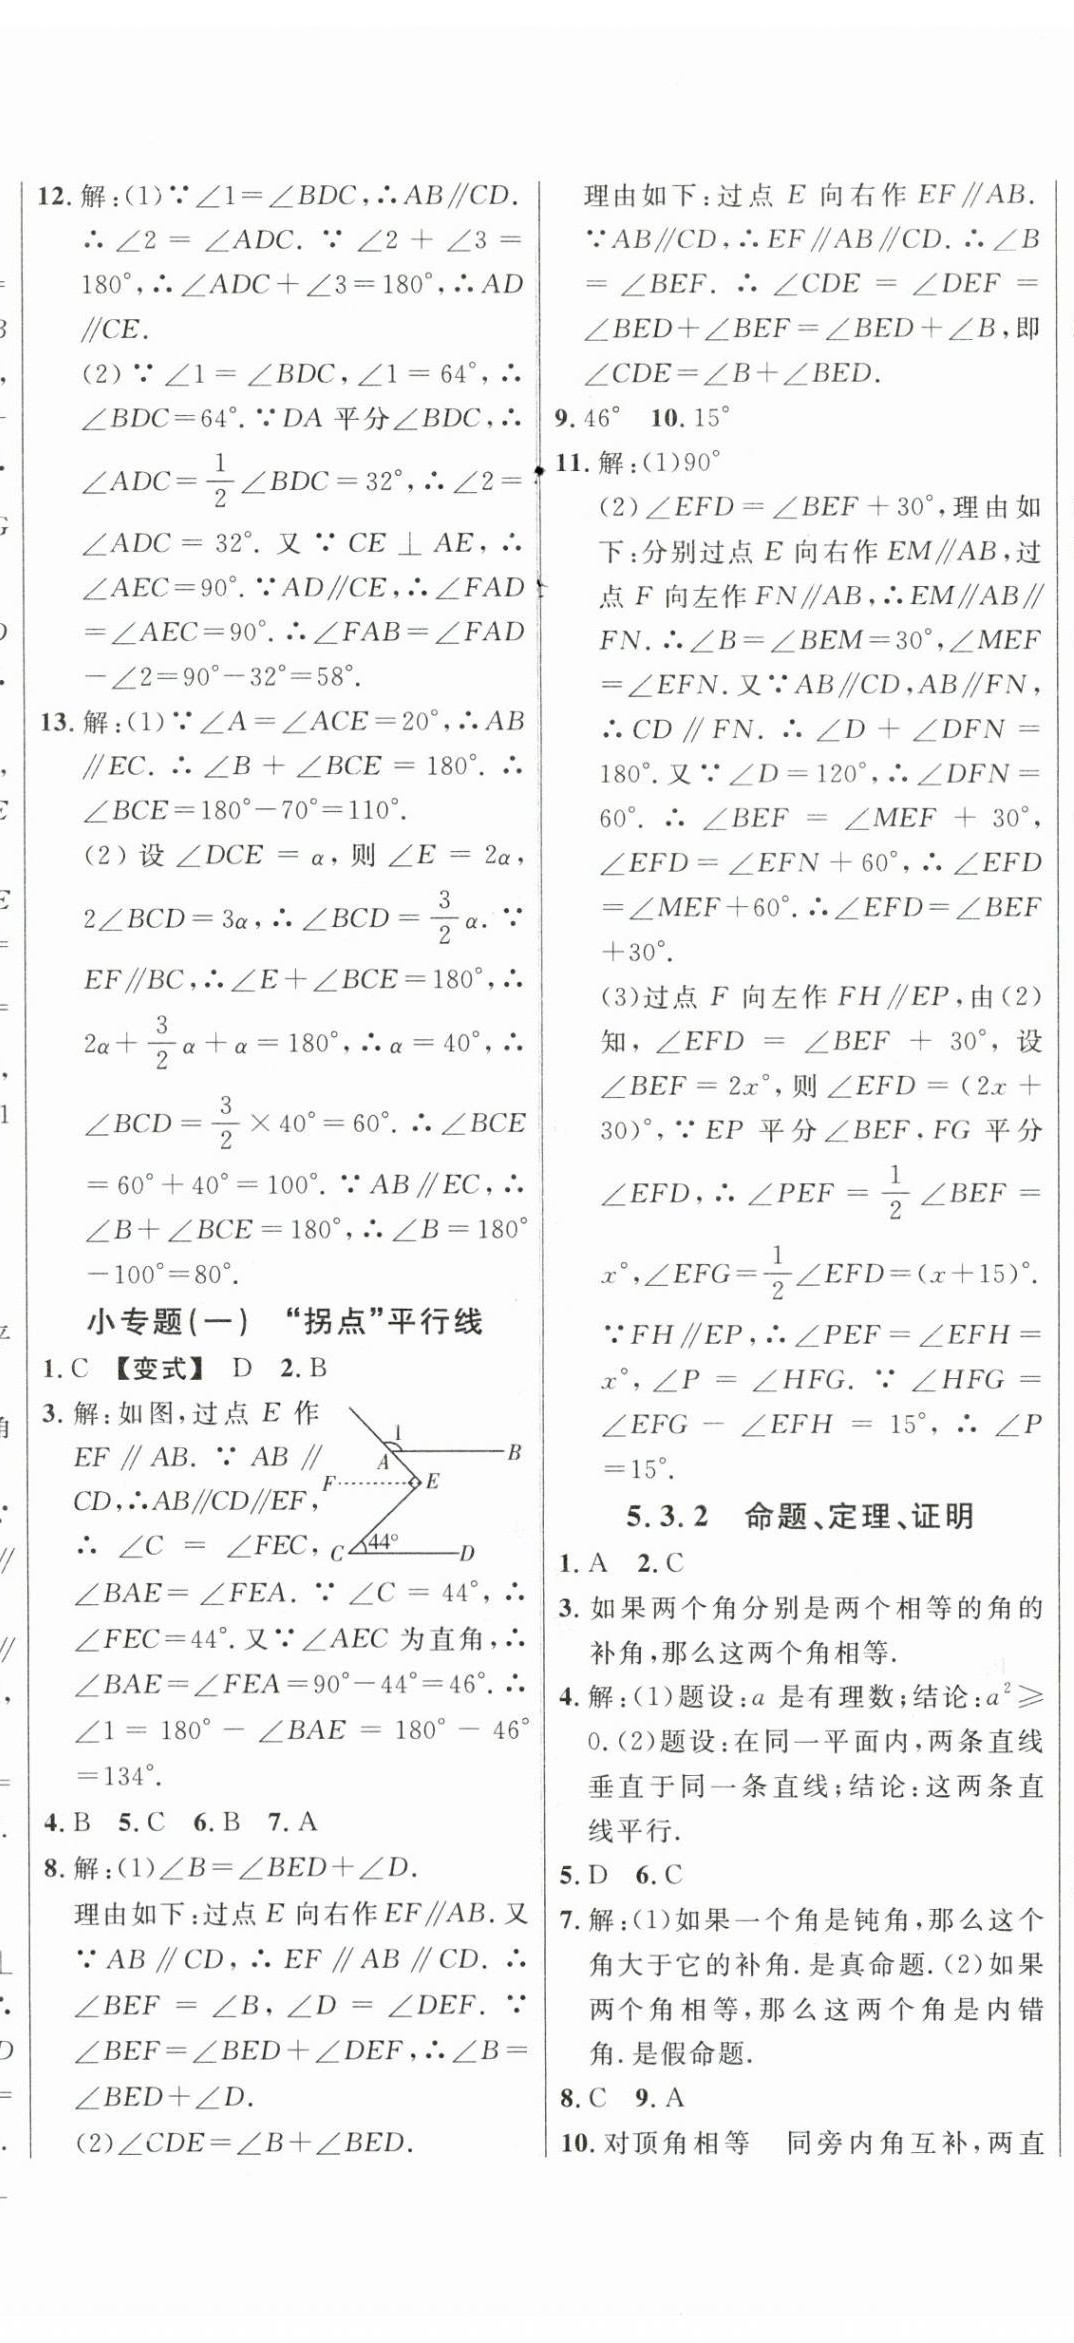 12. 解:(1)∵∠1=∠BDC,∴AB∥CD.
∴∠2=∠ADC. ∵∠2+∠3=
180°,∴∠ADC+∠3=180°,∴AD
∥CE.
(2)∵∠1=∠BDC,∠1=64°,∴
∠BDC=64°.∵DA 平分∠BDC,∴
∠ADC=1/2∠BDC=32°,∴∠2=
∠ADC=32°. 又∵CE⊥AE,∴
∠AEC=90°.∵AD∥CE,∴∠FAD
=∠AEC=90°.∴∠FAB=∠FAD
-∠2=90°-32°=58°.
13. 解:(1)∵∠A=∠ACE=20°,∴AB
∥EC. ∴∠B+∠BCE=180°. ∴
∠BCE=180°-70°=110°.
(2)设∠DCE=α,则∠E=2α,
2∠BCD=3α,∴∠BCD=3/2α. ∵
EF∥BC,∴∠E+∠BCE=180°,∴
2α+3/2α+α=180°,∴α=40°,∴
∠BCD=3/2×40°=60°. ∴∠BCE
=60°+40°=100°. ∵AB∥EC,∴
∠B+∠BCE=180°,∴∠B=180°
-100°=80°.
小专题(一) “拐点”平行线
1. C 【变式】 D 2. B
3. 解:如图,过点 E 作
EF∥AB. ∵AB∥
CD,∴AB∥CD∥EF,
∴∠C=∠FEC,
1
A
B
F
E
C
44°
D
∠BAE=∠FEA. ∵∠C=44°,∴
∠FEC=44°. 又∵∠AEC 为直角,∴
∠BAE=∠FEA=90°-44°=46°. ∴
∠1=180°-∠BAE=180°-46°
=134°.
4. B 5. C 6. B 7. A
8. 解:(1)∠B=∠BED+∠D.
理由如下:过点 E 向右作 EF∥AB. 又
∵AB∥CD,∴EF∥AB∥CD. ∴
∠BEF=∠B,∠D=∠DEF. ∵
∠BEF=∠BED+∠DEF,∴∠B=
∠BED+∠D.
(2)∠CDE=∠B+∠BED.
理由如下:过点 E 向右作 EF∥AB.
∵AB∥CD,∴EF∥AB∥CD. ∴∠B
=∠BEF. ∴∠CDE=∠DEF=
∠BED+∠BEF=∠BED+∠B,即
∠CDE=∠B+∠BED.
9. 46° 10. 15°
11. 解:(1)90°
(2)∠EFD=∠BEF+30°,理由如
下:分别过点 E 向右作 EM∥AB,过
点 F 向左作 FN∥AB,∴EM∥AB∥
FN. ∴∠B=∠BEM=30°,∠MEF
=∠EFN. 又∵AB∥CD,AB∥FN,
∴CD∥FN. ∴∠D+∠DFN=
180°. 又∵∠D=120°,∴∠DFN=
60°. ∴∠BEF=∠MEF+30°,
∠EFD=∠EFN+60°,∴∠EFD
=∠MEF+60°. ∴∠EFD=∠BEF
+30°.
(3)过点 F 向左作 FH∥EP,由(2)
知,∠EFD=∠BEF+30°,设
∠BEF=2x°,则∠EFD=(2x+
30)°,∵EP 平分∠BEF,FG 平分
∠EFD,∴∠PEF=1/2∠BEF=
x°,∠EFG=1/2∠EFD=(x+15)°.
∵FH∥EP,∴∠PEF=∠EFH=
x°,∠P=∠HFG. ∵∠HFG=
∠EFG-∠EFH=15°,∴∠P
=15°.
5.3.2 命题、定理、证明
1. A 2. C
3. 如果两个角分别是两个相等的角的
补角,那么这两个角相等.
4. 解:(1)题设:a 是有理数;结论:a²≥
0. (2)题设:在同一平面内,两条直线
垂直于同一条直线;结论:这两条直
线平行.
5. D 6. C
7. 解:(1)如果一个角是钝角,那么这个
角大于它的补角. 是真命题. (2)如果
两个角相等,那么这两个角是内错
角. 是假命题.
8. C 9. A
10. 对顶角相等 同旁内角互补,两直